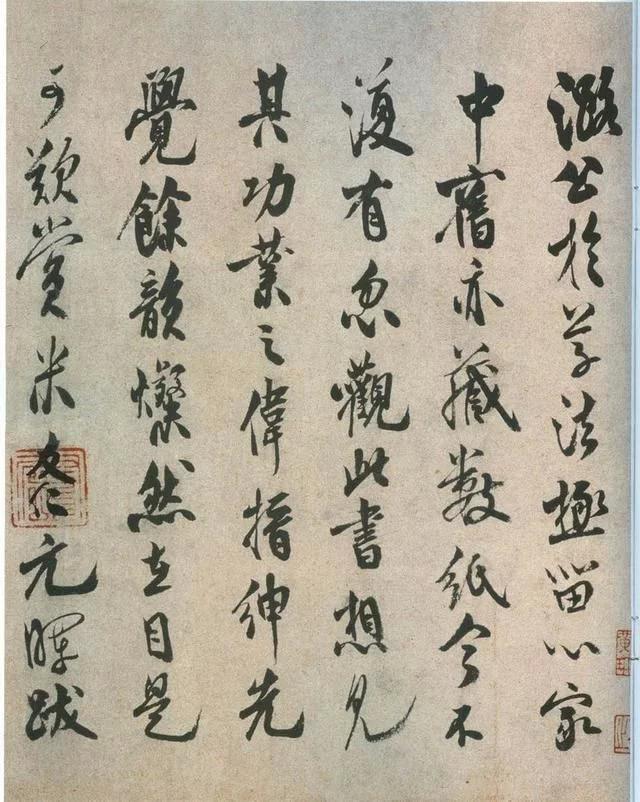 潞公於草法極留心家
中舊亦藏數紙今不
復有忽觀此書想見
其功業之偉搢紳先
覺餘韻燦然在目是
可歎賞米友仁元暉跋